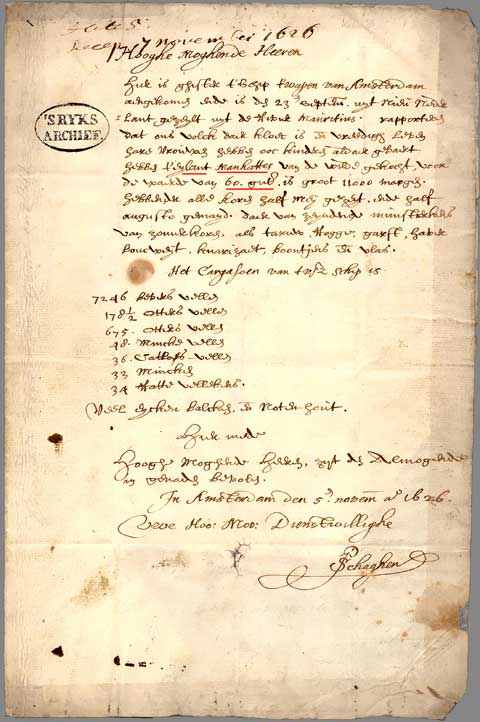 7 november 1626
Hooghe Moghende Heeren
'SRYKS
ARCHIEF.
Hier is ghister t'schip t'wapen van Amsterdam
aengekomen ende is den 23en septem. uyt Nieu Neder
lant gezeylt uyt de rivier Mauritius. rapporteren
dat ons volck daer kloec is en vreedigh leven
hare vrouwen hebben ooc kinderen aldaer gebaert
hebben t'eylant Manhattes van de wilde gekocht, voor
de waerde van 60. guld. is groot 11000 morgen.
hebbende alle koren half mey gezeyt, ende half
augusto gemayd. daer van zeynden munsterkens
van zomerkoren, als tarwe, Rogge, garst, haver
boucweyt, knarizaet, boontjens en vlas.
Het Cargasoen van tvsz schip is
7246 Bevers vellen
178½ Otters vellen
675. Otters vellen
48. Mincke vellen
36. Catloes vellen
33 Mincken
34 Ratte vellekens.
Veel eycken balcken, en Noten hout.
Hier mede
Hooghe Moghende Heeren, zyt den Almogende
in genaden bevolen.
In Amsterdam den 5en novem ao 1626.
Uwe Hoo: Moo: Dienstwillighe
P Schaghen